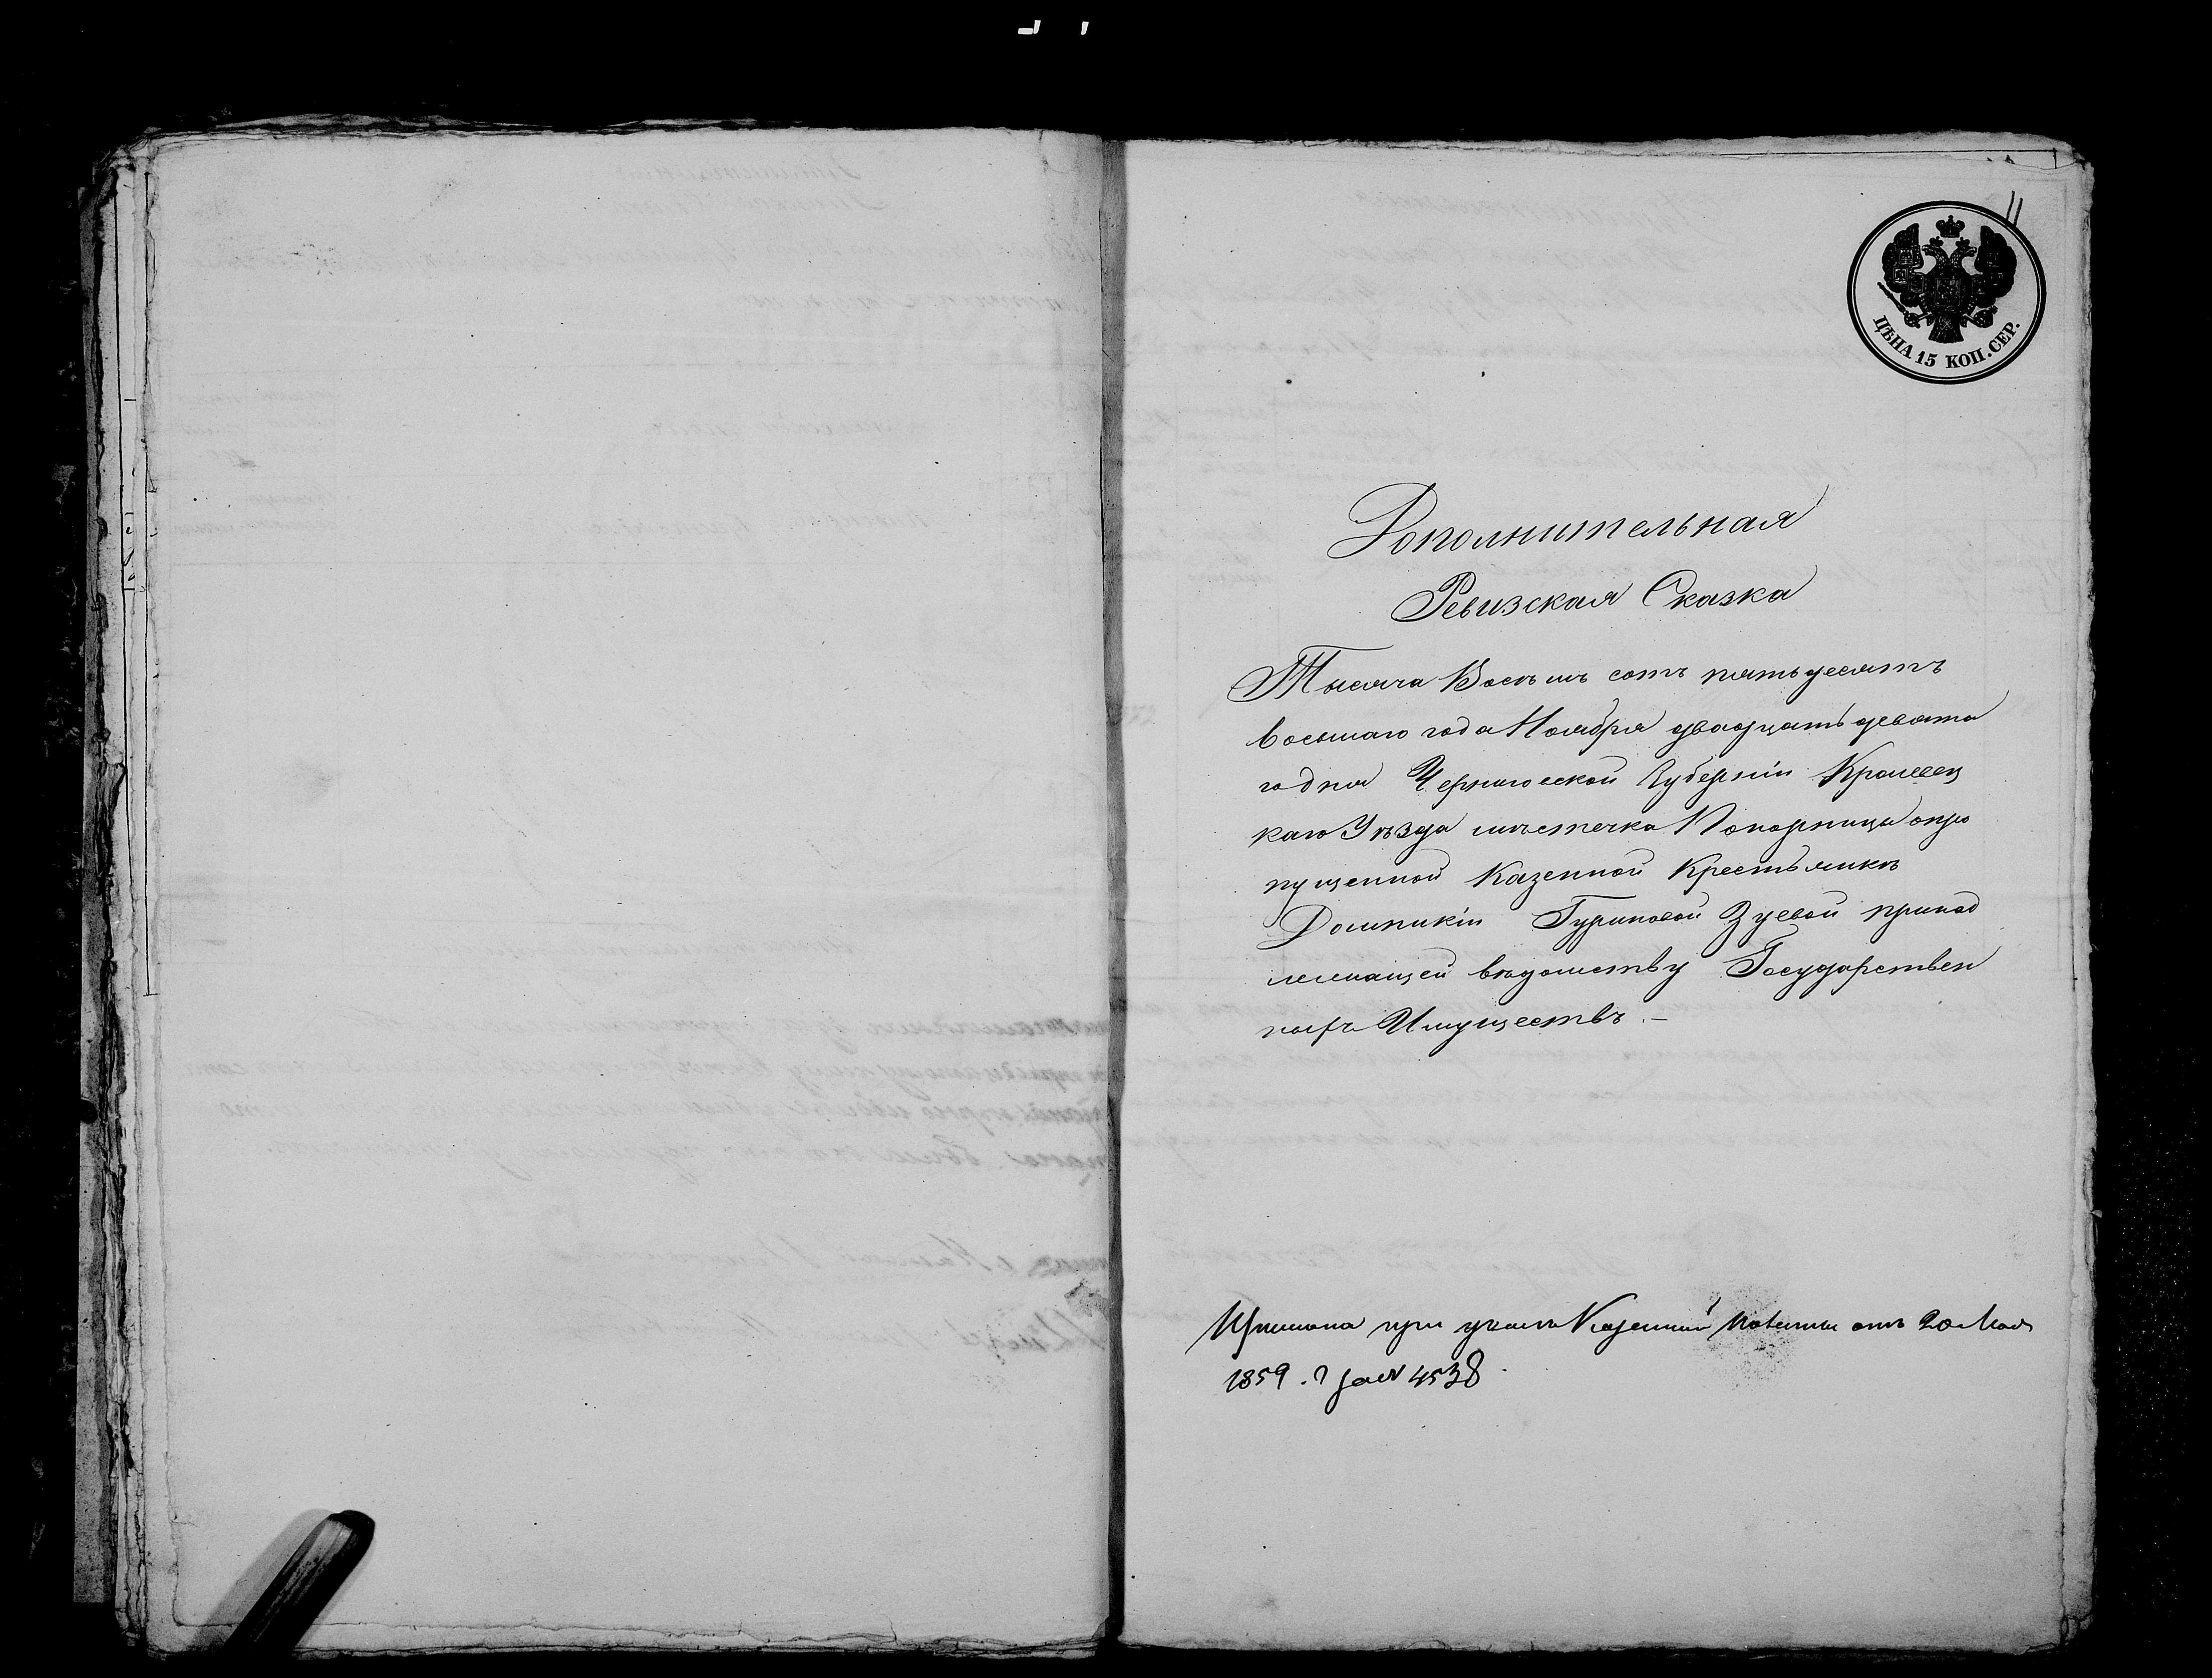 11
ЦѢНА 15 КОП. СЕР.
Дополнительная
Ревизская Сказка
Тысяча Восемь сотъ пятьдесятъ
восьмаго года Ноября двадцать девята
го дня Черниговской Губерніи Кролевец
каго Уѣзда мѣстечка Понорницы о про
пущенной Казенной Крестьянкѣ
Домникіи Гуриновой Зуевой принад
лежащей вѣдомству Государствен
ныхъ Имуществъ. –
при указѣ Казенной Палаты отъ 20 Мая
1859. г за № 4538